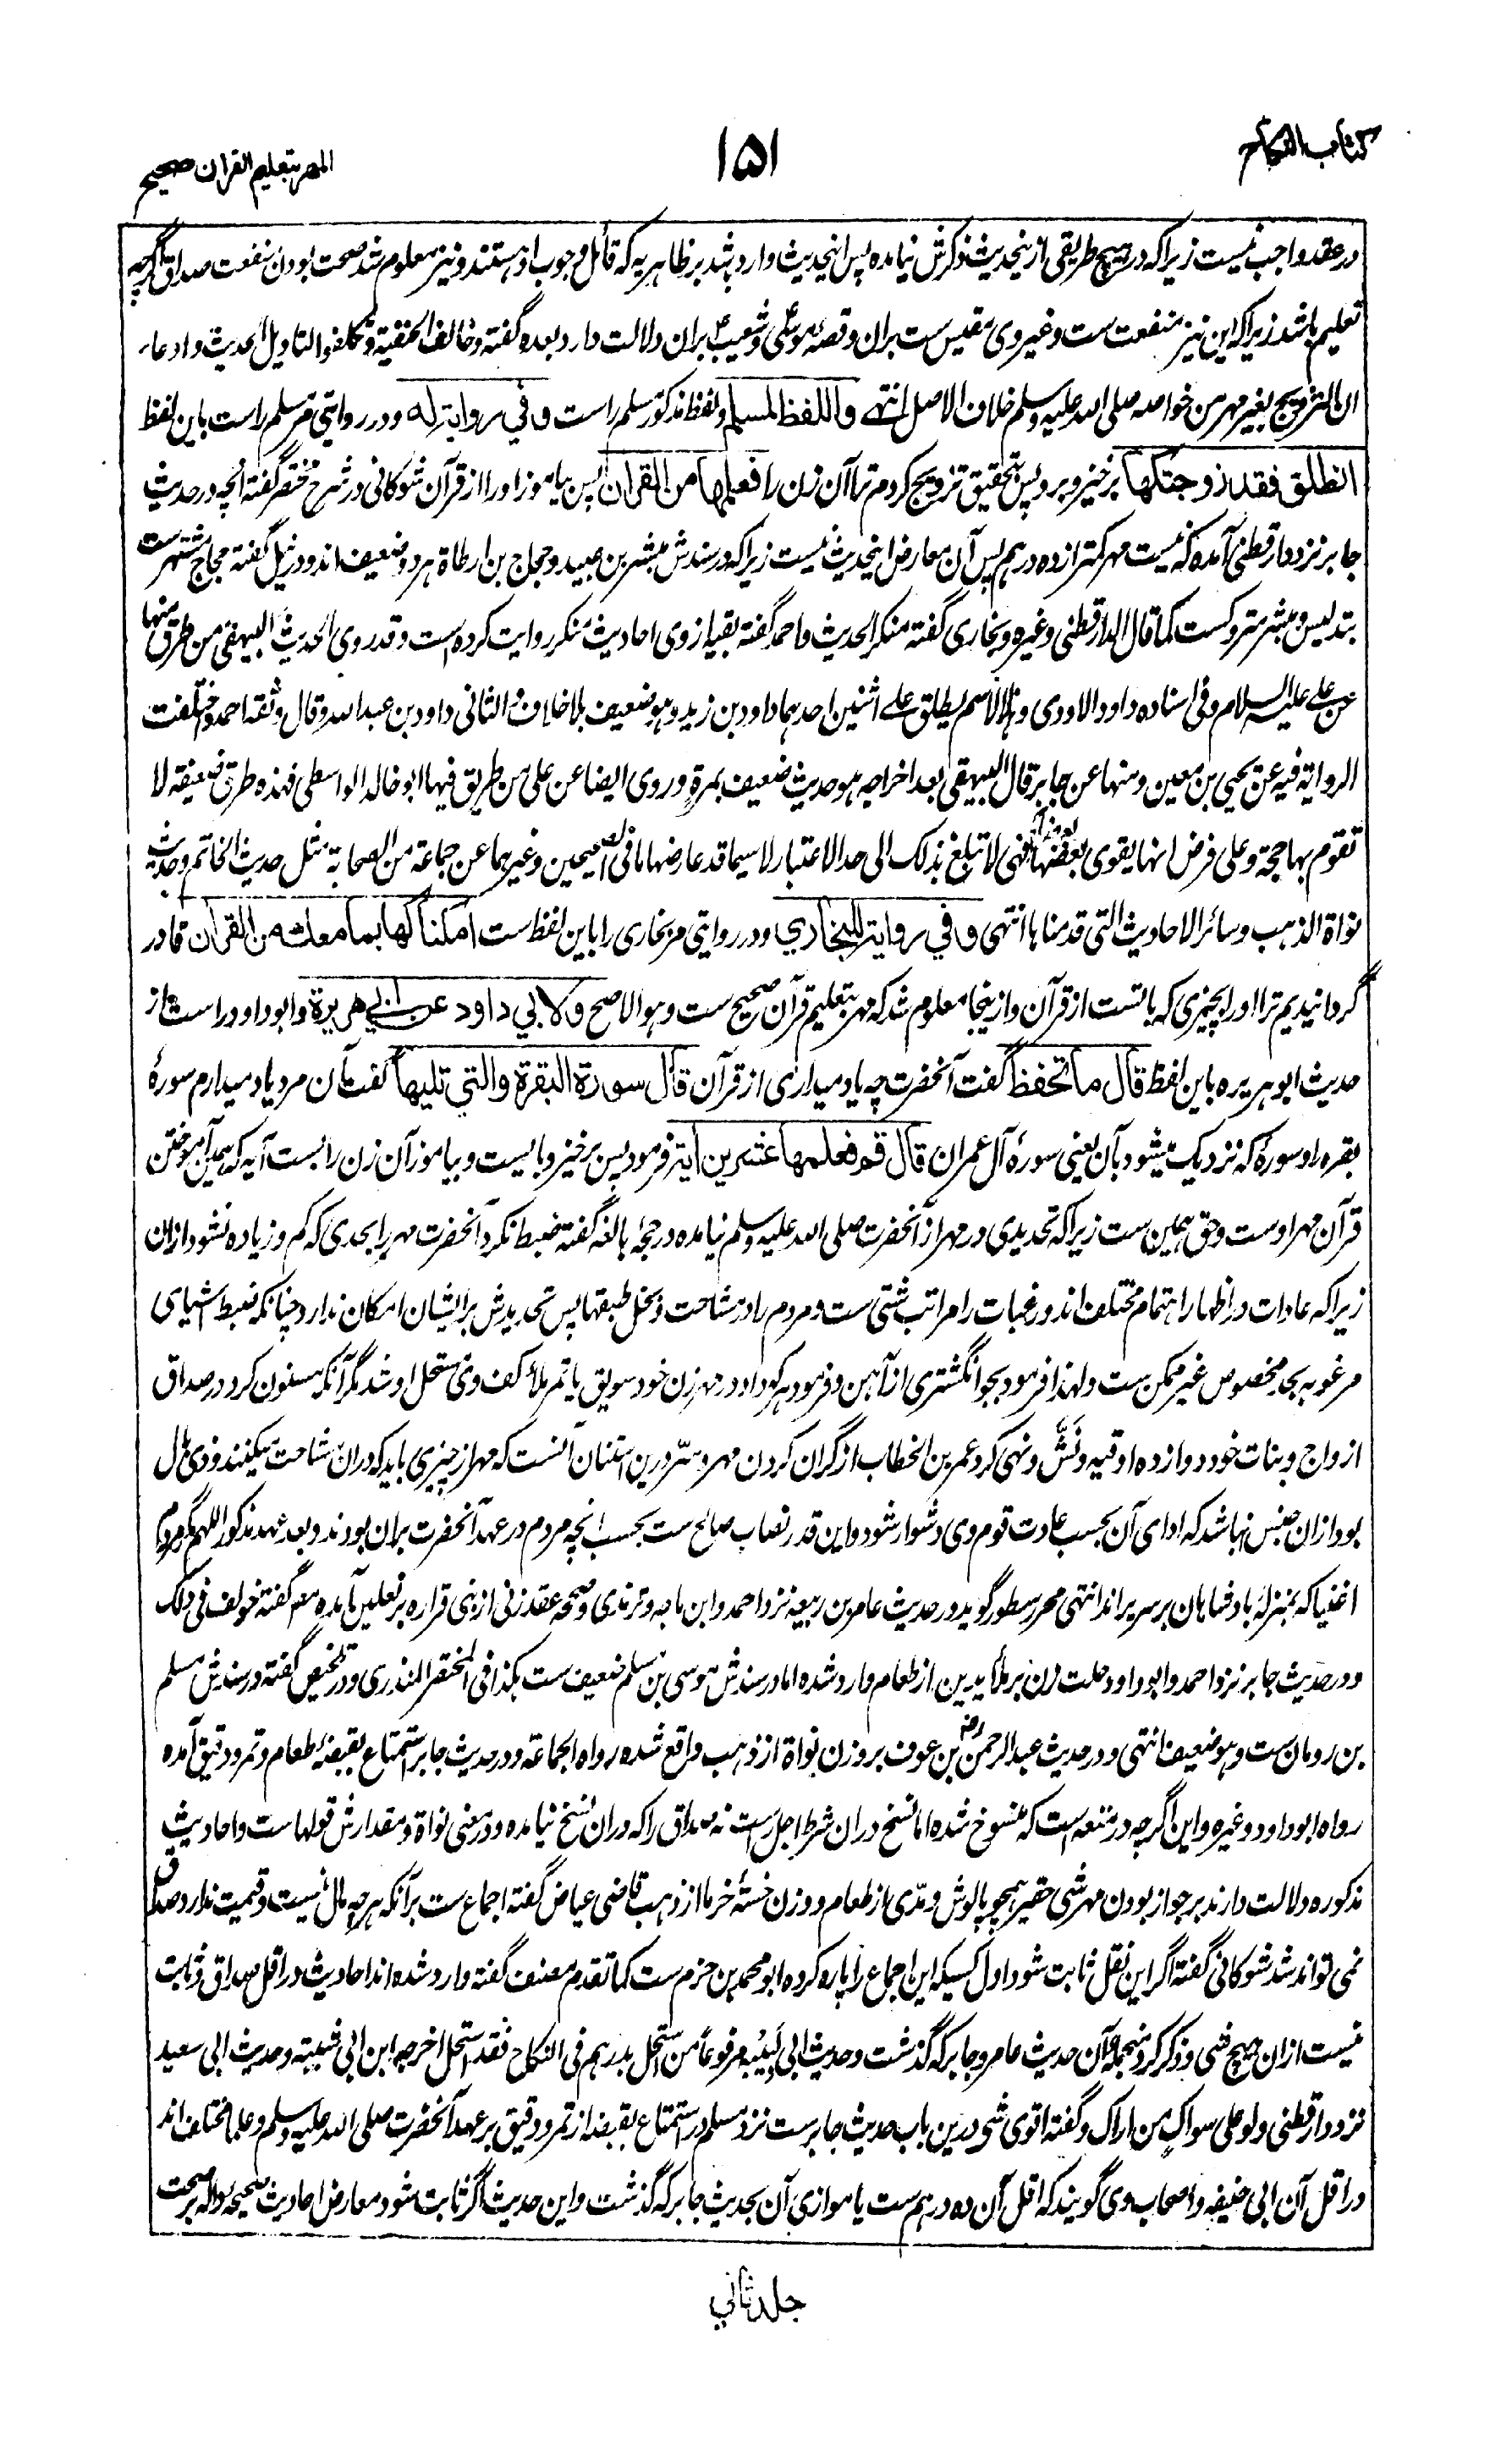 کتاب النکاح
۱۵۱
المهر بتعلیم القران صحیح
در عقد واجب نیست زیرا که در هیچ طریقی ازینحدیث ذکرش نیامده پس اینحدیث وارد باشد بر ظاهریه که قائل وجوب او هستند و نیز معلوم شد صحت بودن منفعت صداق اگرچه
تعلیم باشد زیرا که این نیز منفعت ست و غیر وی مقیس ست بران و قصۀ موسی و شعیب بران دلالت دارد بعده گفته و خالف الحنفیة و تکلفوا لتاویل الحدیث و ادعاء
ان التزویج بغیر مهر من خواصه صلی الله علیه وسلم خلاف الاصل انتهے واللفظ لمسلم و لفظ مذکور مسلم راست وفي رواية له و در روایتی مر مسلم راست باین لفظ
انطلق فقد زوجتکها برخیز و برو پس بتحقیق تزویج کردم ترا آن زن را فعلمها من القران پس بیاموز او را از قرآن شوکانی در شرح مختصر گفته آنچه در حدیث
جابر نزد دارقطنی آمده که نیست مهر کمتر از ده درهم پس آن معارض اینحدیث نیست زیرا که در سندش مبشر بن عبید و حجاج بن ارطاة هردو ضعیف اند و در نیل گفته حجاج مشتهرست
بتدلیس و مبشر متروکست کما قال الدارقطنی و غیره و بخاری گفته منکر الحدیث و احمد گفته بقیه از وی احادیث منکر روایت کرده است و قد روی الحدیث البیهقی من طرق منها
عن علی علیه السلام و فی اسناده داود الاودی و هذا الاسم یطلق علے اثنین احدهما داود بن زید و هو ضعیف بلا خلاف و الثانی داود بن عبدالله و قال وثقه احمد و اختلفت
الروایة فیه عن یحیی بن معین و منها عن جابر قال البیهقی بعد اخراجه هو حدیث ضعیف بمرة و روی ایضا عن علی من طریق فیها ابو خالد الواسطی فهذه طرق ضعیفة لا
تقوم بها حجة و علی فرض انها یقوی بعضها بعضا فهی لا تبلغ بذلک الی حد الاعتبار لا سیما قد عارضها ما فی الصحیحین و غیرهما عن جماعة من الصحابة مثل حدیث الخاتم و حدیث
نواة الذهب و سائر الاحادیث التی قدمناها انتهی وفي رواية للبخاري و در روایتی مر بخاری را باین لفظ ست امکناکها بما معك من القران قادر
گردانیدیم ترا او را بچیزی که با تست از قرآن و ازینجا معلوم شد که مهر بتعلیم قرآن صحیح ست و هو الاصح ولابي داود عن ابي هريرة و ابو داود راست از
حدیث ابو هریره باین لفظ قال ما تحفظ گفت آنحضرت چه یاد میداری از قرآن قال سورة البقرة والتي تليها گفت آن مرد یاد میدارم سورۀ
بقره را و سورۀ که نزدیک میشود بآن یعنی سورۀ آل عمران قال قم فعلمها عشرين اية فرمود پس برخیز و بایست و بیاموز آن زن را بست آیه که همین آموختن
قرآن مهر اوست و حق همین ست زیرا که تحدیدی در مهر از آنحضرت صلی الله علیه وسلم نیامده در حجۀ بالغه گفته ضبط نکرد آنحضرت مهر را بحدی که کم و زیاده نشود ازان
زیرا که عادات در اظهار اهتمام مختلف اند و رغبات را مراتب شتی ست و مردم را در مشاحت و بخل طبقها پس تحدیدش بر ایشان امکان ندارد چنانکه ضبط اشیای
مرغوبه بحد مخصوص غیر ممکن ست ولهذا فرمود بجو انگشتری از آهن و فرمود هر که داد در مهر زن خود سویق یا تمر ملأ کف وی مستحل او شد مگر آنکه مسنون کرد در صداق
ازواج و بنات خود دوازده اوقیه و نَشّ و نهی کرد عمر بن الخطاب از گران کردن مهر و سّر درین استنان آنست که مهر از چیزی باید که دران مشاحت میکنند و ذی بال
بود ازان جنس نباشد که ادای آن بحسب عادت قوم وی دشوار شود و این قدر نصاب صالح ست بحسب آنچه مردم در عهد آنحضرت بران بودند و بعد عهد مذکور اللهم مگر مردم
اغنیا که بمنزلۀ بادشاهان بر سریر اند انتهی محرر سطور گوید در حدیث عامر بن ربیعه نزد احمد و ابن ماجه و ترمذی و صححه عقد زنی از بنی فزاره بر نعلین آمده گفته خولف فی ذلک
و در حدیث جابر نزد احمد و ابو داود حلت زن بر ملأ یدین از طعام وارد شده اما در سندش موسی بن مسلم ضعیف ست هکذا فی المختصر المنذری و در تلخیص گفته در سندش مسلم
بن رومان ست و هو ضعیف انتهی و در حدیث عبدالرحمن بن عوف بر وزن نواة از ذهب واقع شده رواه الجماعة و در حدیث جابر استمتاع بقبضۀ طعام و تمر و دقیق آمده
رواه ابو داود و غیره و این اگرچه در متعه است که منسوخ شده اما نسخ دران شرط اجل ست نه صداق را که دران نسخ نیامده و در معنی نواة و مقدارش قولهاست و احادیث
مذکوره دلالت دارند بر جواز بودن مهر شی حقیر همچو پاپوش و مدّی از طعام و وزن خستۀ خرما از ذهب قاضی عیاض گفته اجماع ست برآنکه هرچه مال نیست و قیمت ندارد صداق
نمی تواند شد شوکانی گفته اگر این نقل ثابت شود اول کسیکه این اجماع را پاره کرده ابو محمد بن حزم ست کما تقدم مصنف گفته وارد شده اند احادیث در اقل صداق و ثابت
نیست ازان هیچ شی و ذکر کرد منجملۀ آن حدیث عامر و جابر که گذشت و حدیث ابی لَبِیبَه مرفوعًا من استحل بدرهم فی النکاح فقد استحل اخرجه ابن ابی شیبة و حدیث ابی سعید
نزد دارقطنی ولو علی سواک من اراک و گفته اقوی شی درین باب حدیث جابر ست نزد مسلم در استمتاع بقبضه از تمر و دقیق بر عهد آنحضرت صلی الله علیه وسلم و علما مختلف اند
در اقل آن ابی حنیفه و اصحاب وی گویند که اقل آن ده درهم ست یا موازی آن بحدیث جابر که گذشت و این حدیث اگر ثابت شود معارض احادیث صحیحه دواله بر صحت
جلد ثانی